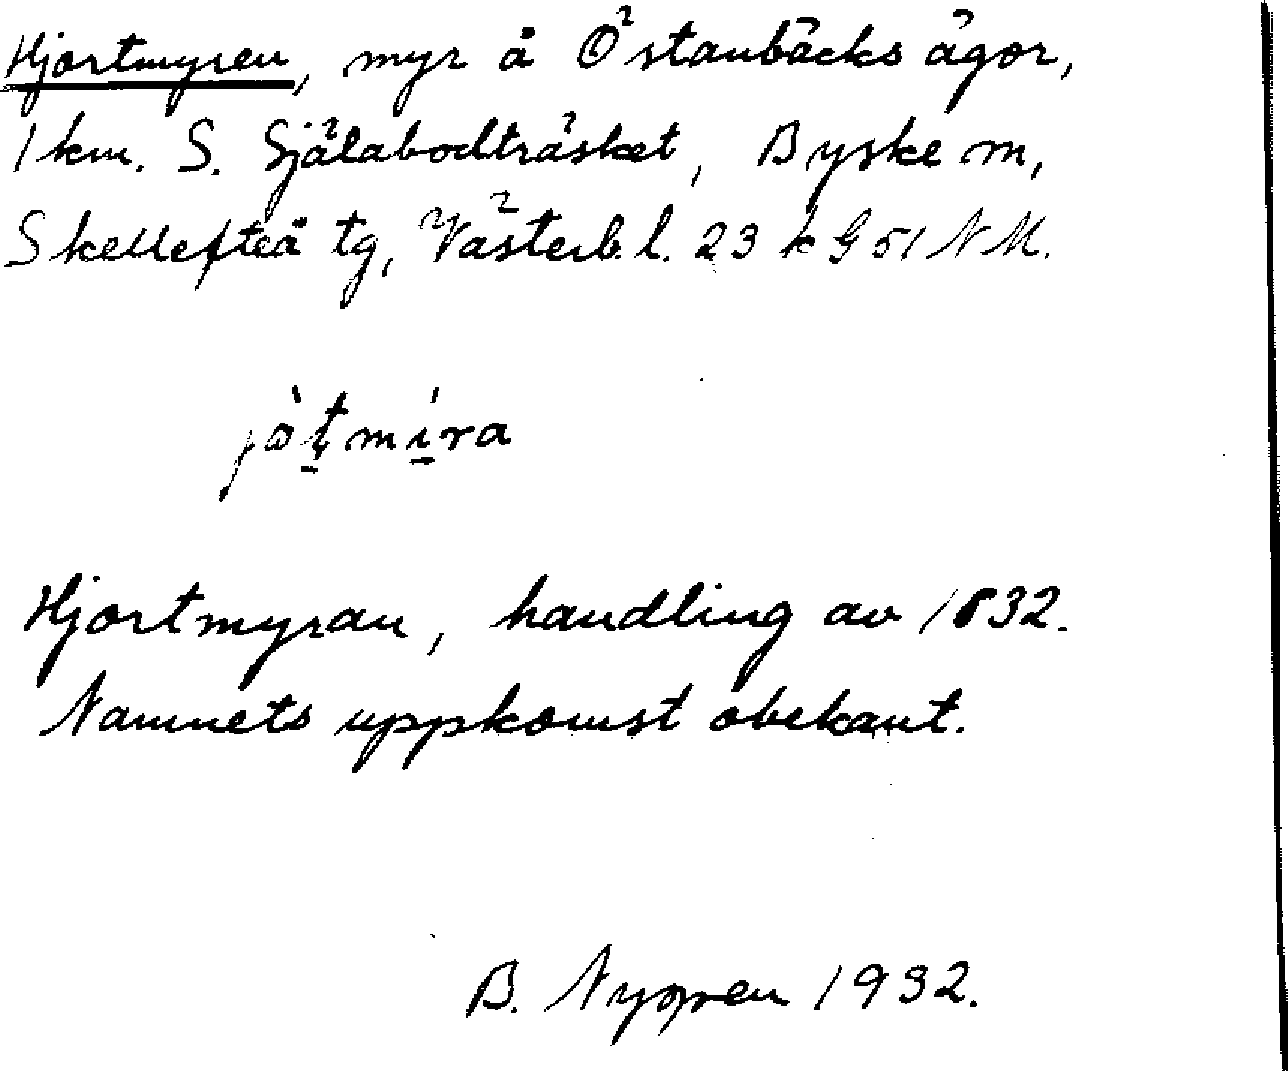 Hjortmyren, myr å Östanbäcks ägor,
1 km. S. Själabodträsket, Byske sn,
Skellefteå tg, Västerb. l. 23 k G 51 N M.
jòt̠mí̠ra
Hjortmyran, handling av 1832.
Namnets uppkomst obekant.
B. Nygren 1932.